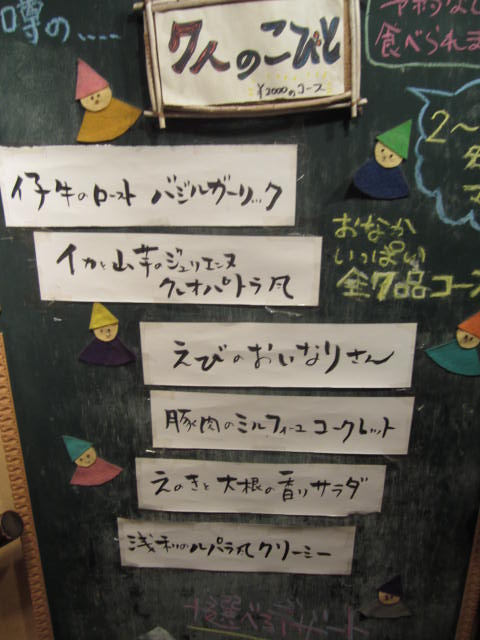 噂の....
7人のこびと
¥2000のコース
食べられま
2〜
仔牛のロースト バジルガーリック
おなか
いっぱい
全7品コース
イカと山芋のジュリエンヌ
クレオパトラ風
えびのおいなりさん
豚肉のミルフィーユ コークレット
えのきと大根の香りサラダ
浅利のルパラ風クリーミー
選べるデザート